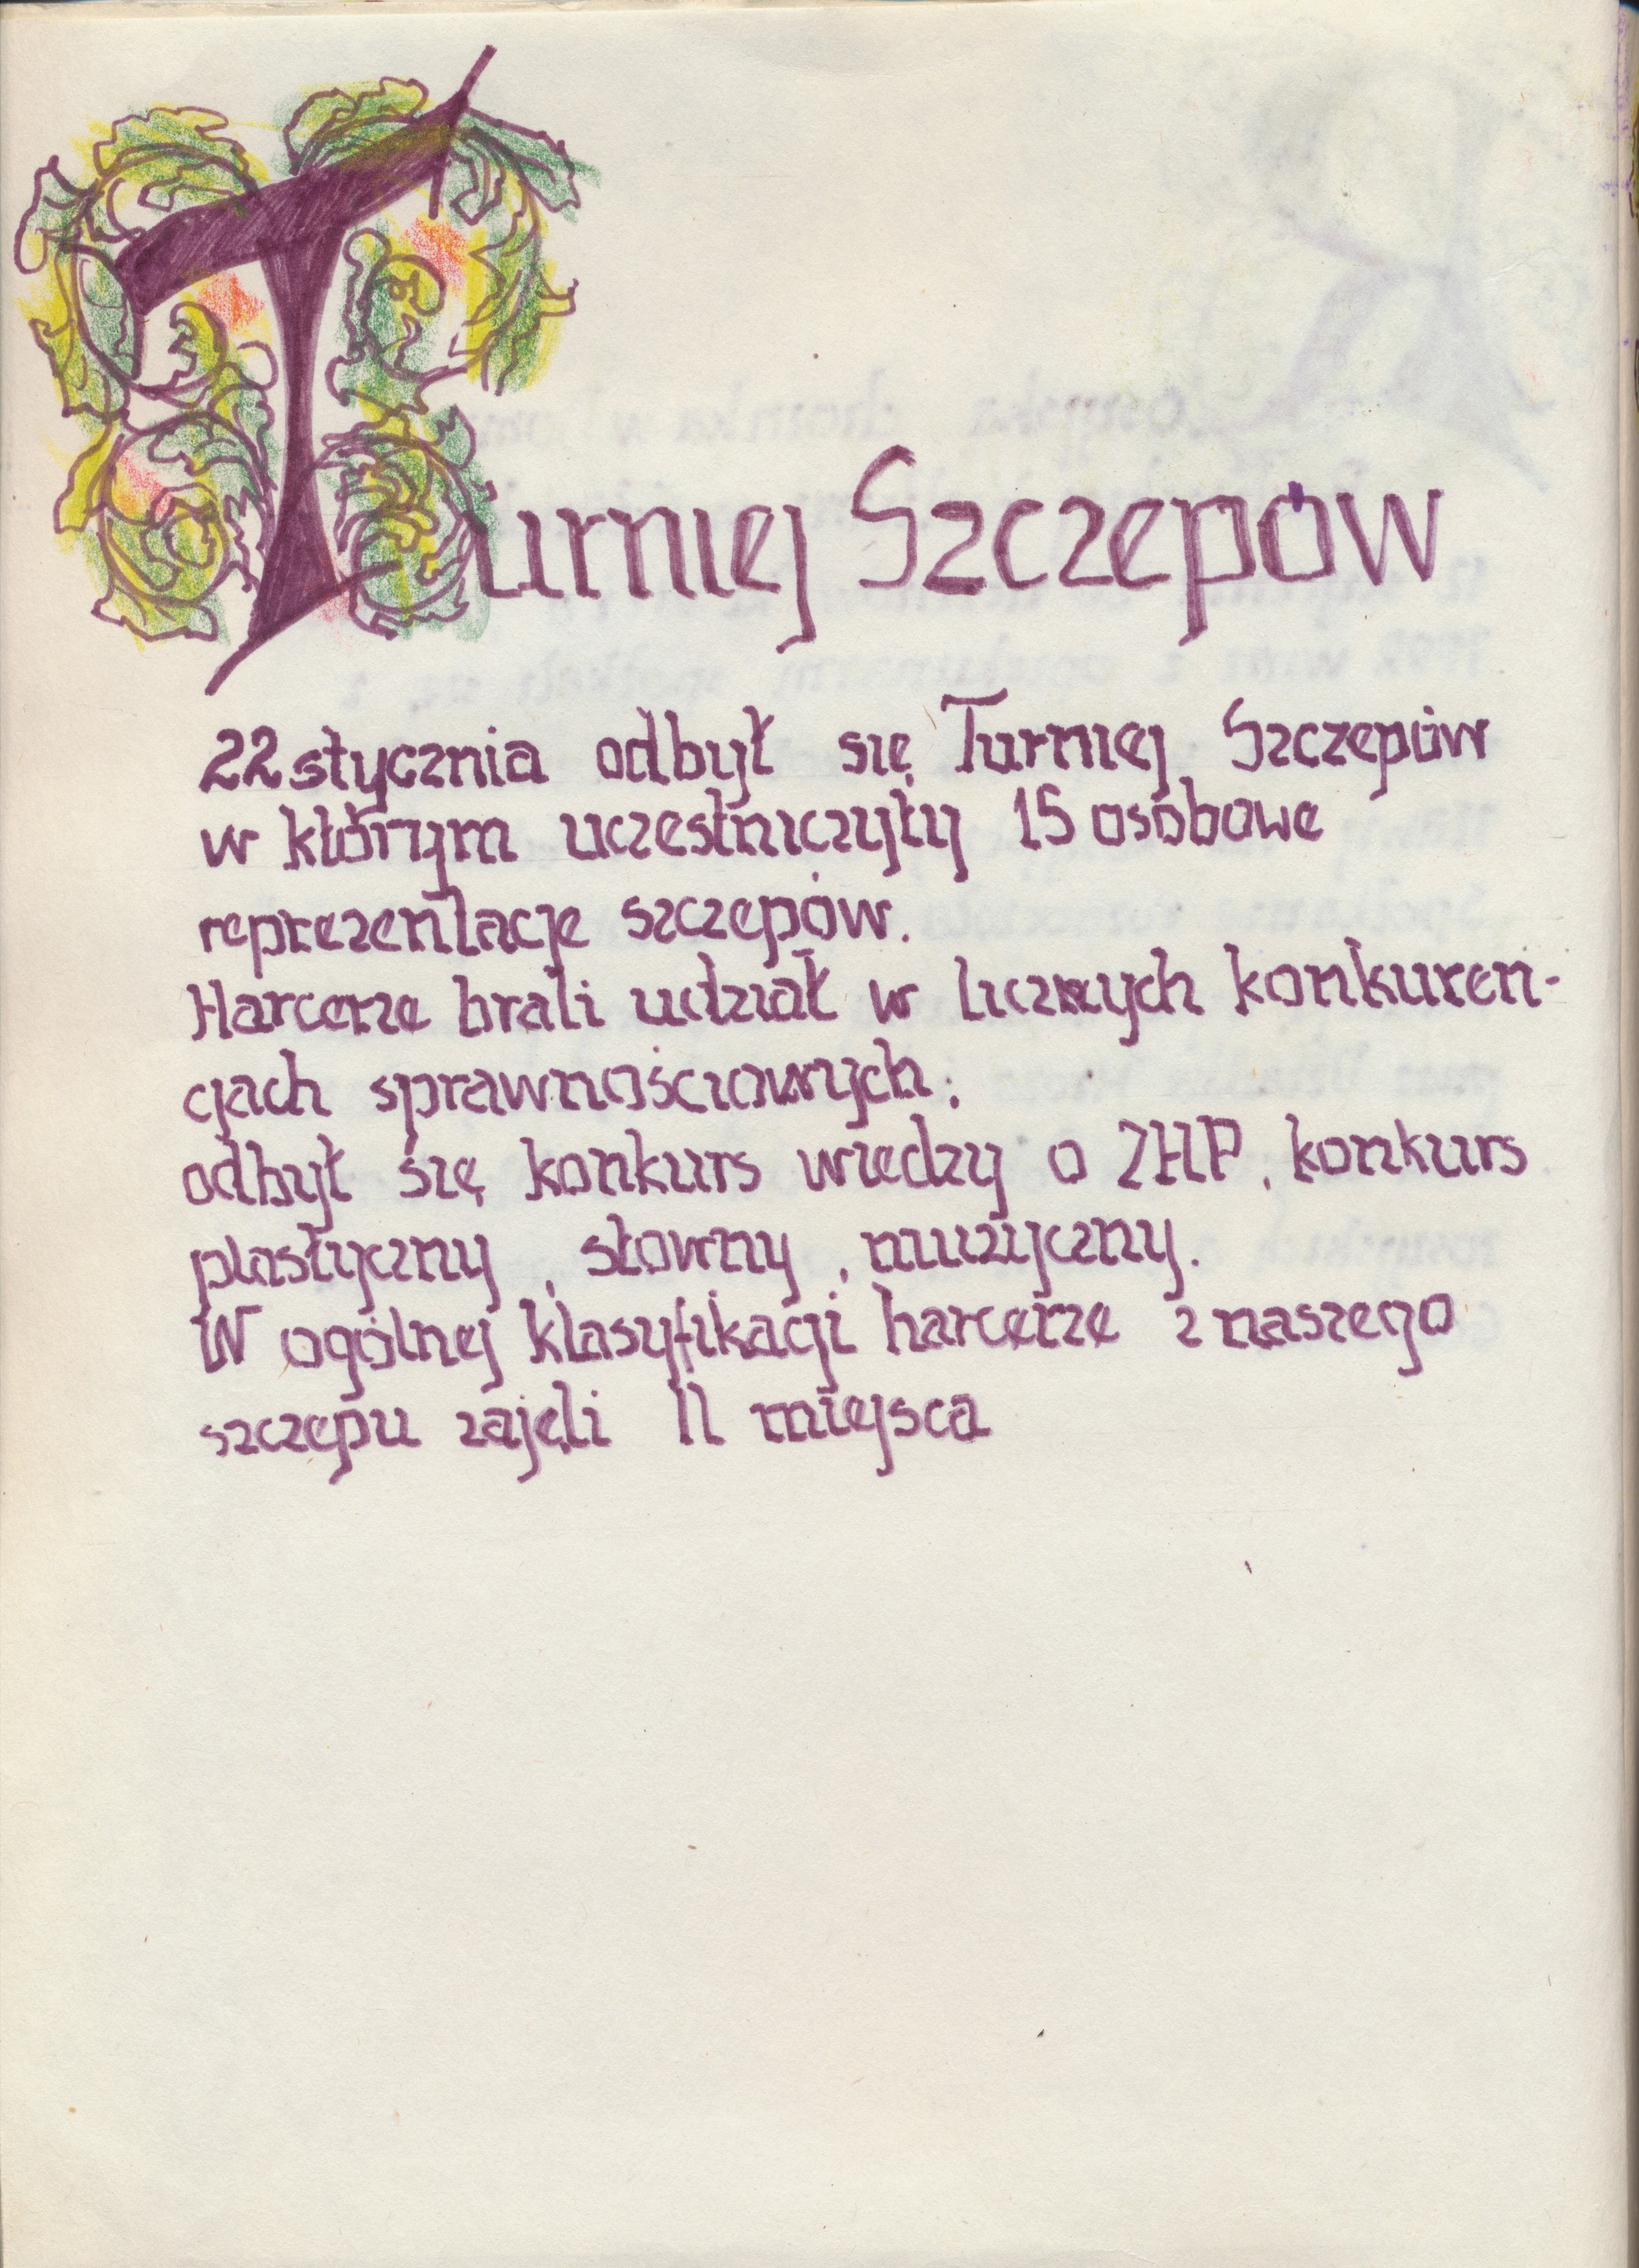 Turniej Szczepów
22 stycznia odbył się Turniej Szczepów
w którym uczestniczyły 15 osobowe
reprezentacje szczepów.
Harcerze brali udział w licznych konkuren-
cjach sprawnościowych;
odbył się konkurs wiedzy o ZHP, konkurs
plastyczny, słowny, muzyczny.
W ogólnej klasyfikacji harcerze z naszego
szczepu zajęli II miejsca